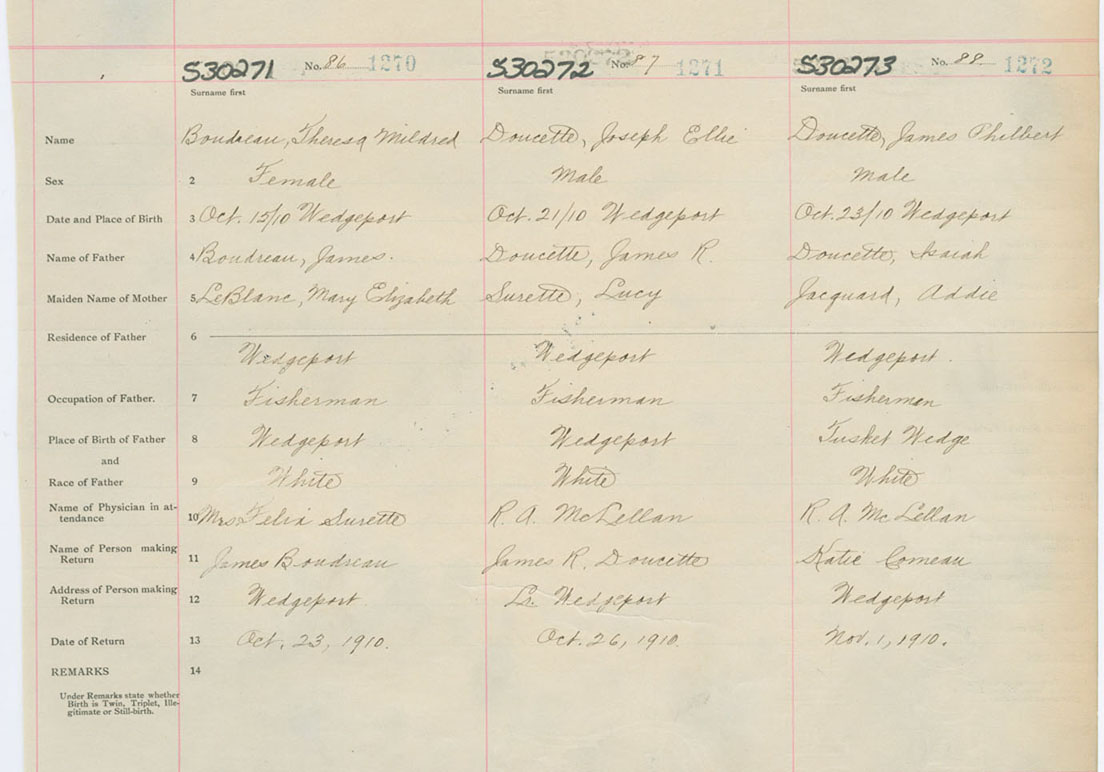 S30271 No. 86 1270 S30272 No. 87 1271 S30273 No. 88 1272
Surname first Surname first Surname first
Name Boudreau, Theresa Mildred Doucette, Joseph Ellie Doucette, James Philbert
Sex 2 Female Male Male
Date and Place of Birth 3 Oct. 15/10 Wedgeport Oct. 21/10 Wedgeport Oct. 23/10 Wedgeport
Name of Father 4 Boudreau, James. Doucette, James R. Doucette, Isaiah
Maiden Name of Mother 5 LeBlanc, Mary Elizabeth Surette, Lucy Jacquard, Addie
Residence of Father 6
Wedgeport Wedgeport Wedgeport.
Occupation of Father. 7 Fisherman Fisherman Fisherman
Place of Birth of Father 8 Wedgeport Wedgeport Tusket Wedge
and
Race of Father 9 White White White
Name of Physician in at-
tendance 10 Mrs Felix Surette R. A. McLellan R. A. McLellan
Name of Person making
Return 11 James Boudreau James R. Doucette Katie Comeau
Address of Person making
Return 12 Wedgeport Lr. Wedgeport Wedgeport
Date of Return 13 Oct. 23, 1910. Oct. 26, 1910. Nov. 1, 1910.
REMARKS 14
Under Remarks state whether
Birth is Twin, Triplet, Ille-
gitimate or Still-birth.